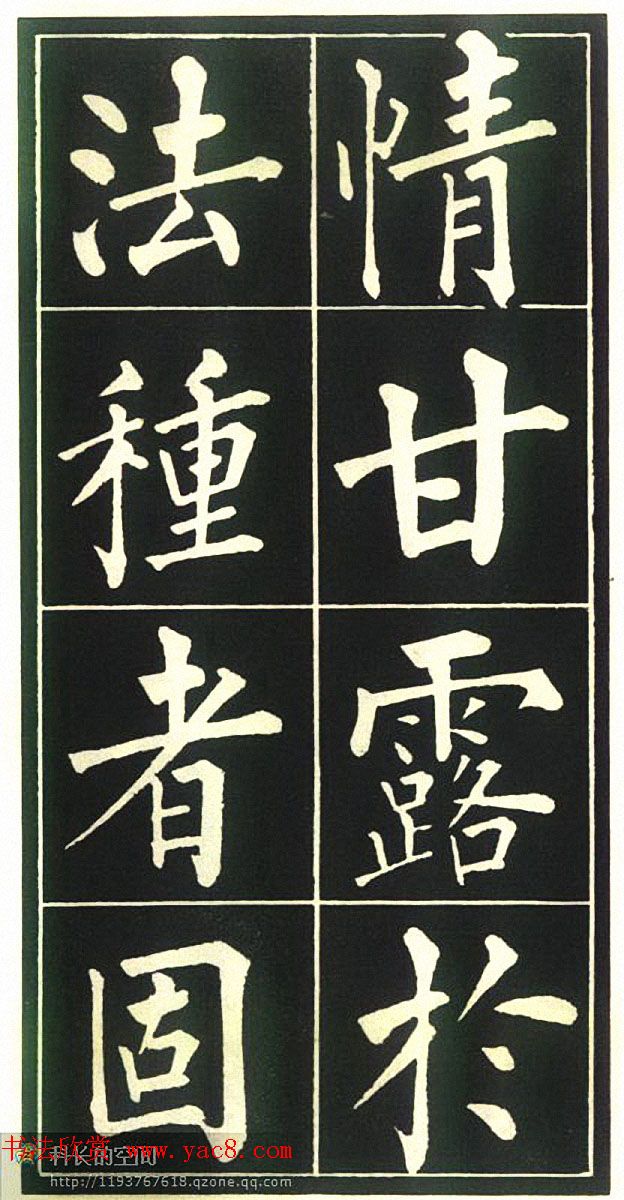 情甘露於
法種者固
书法欣赏 www.yac8.com
科长的空间
http://1193767618.qzone.qq.com